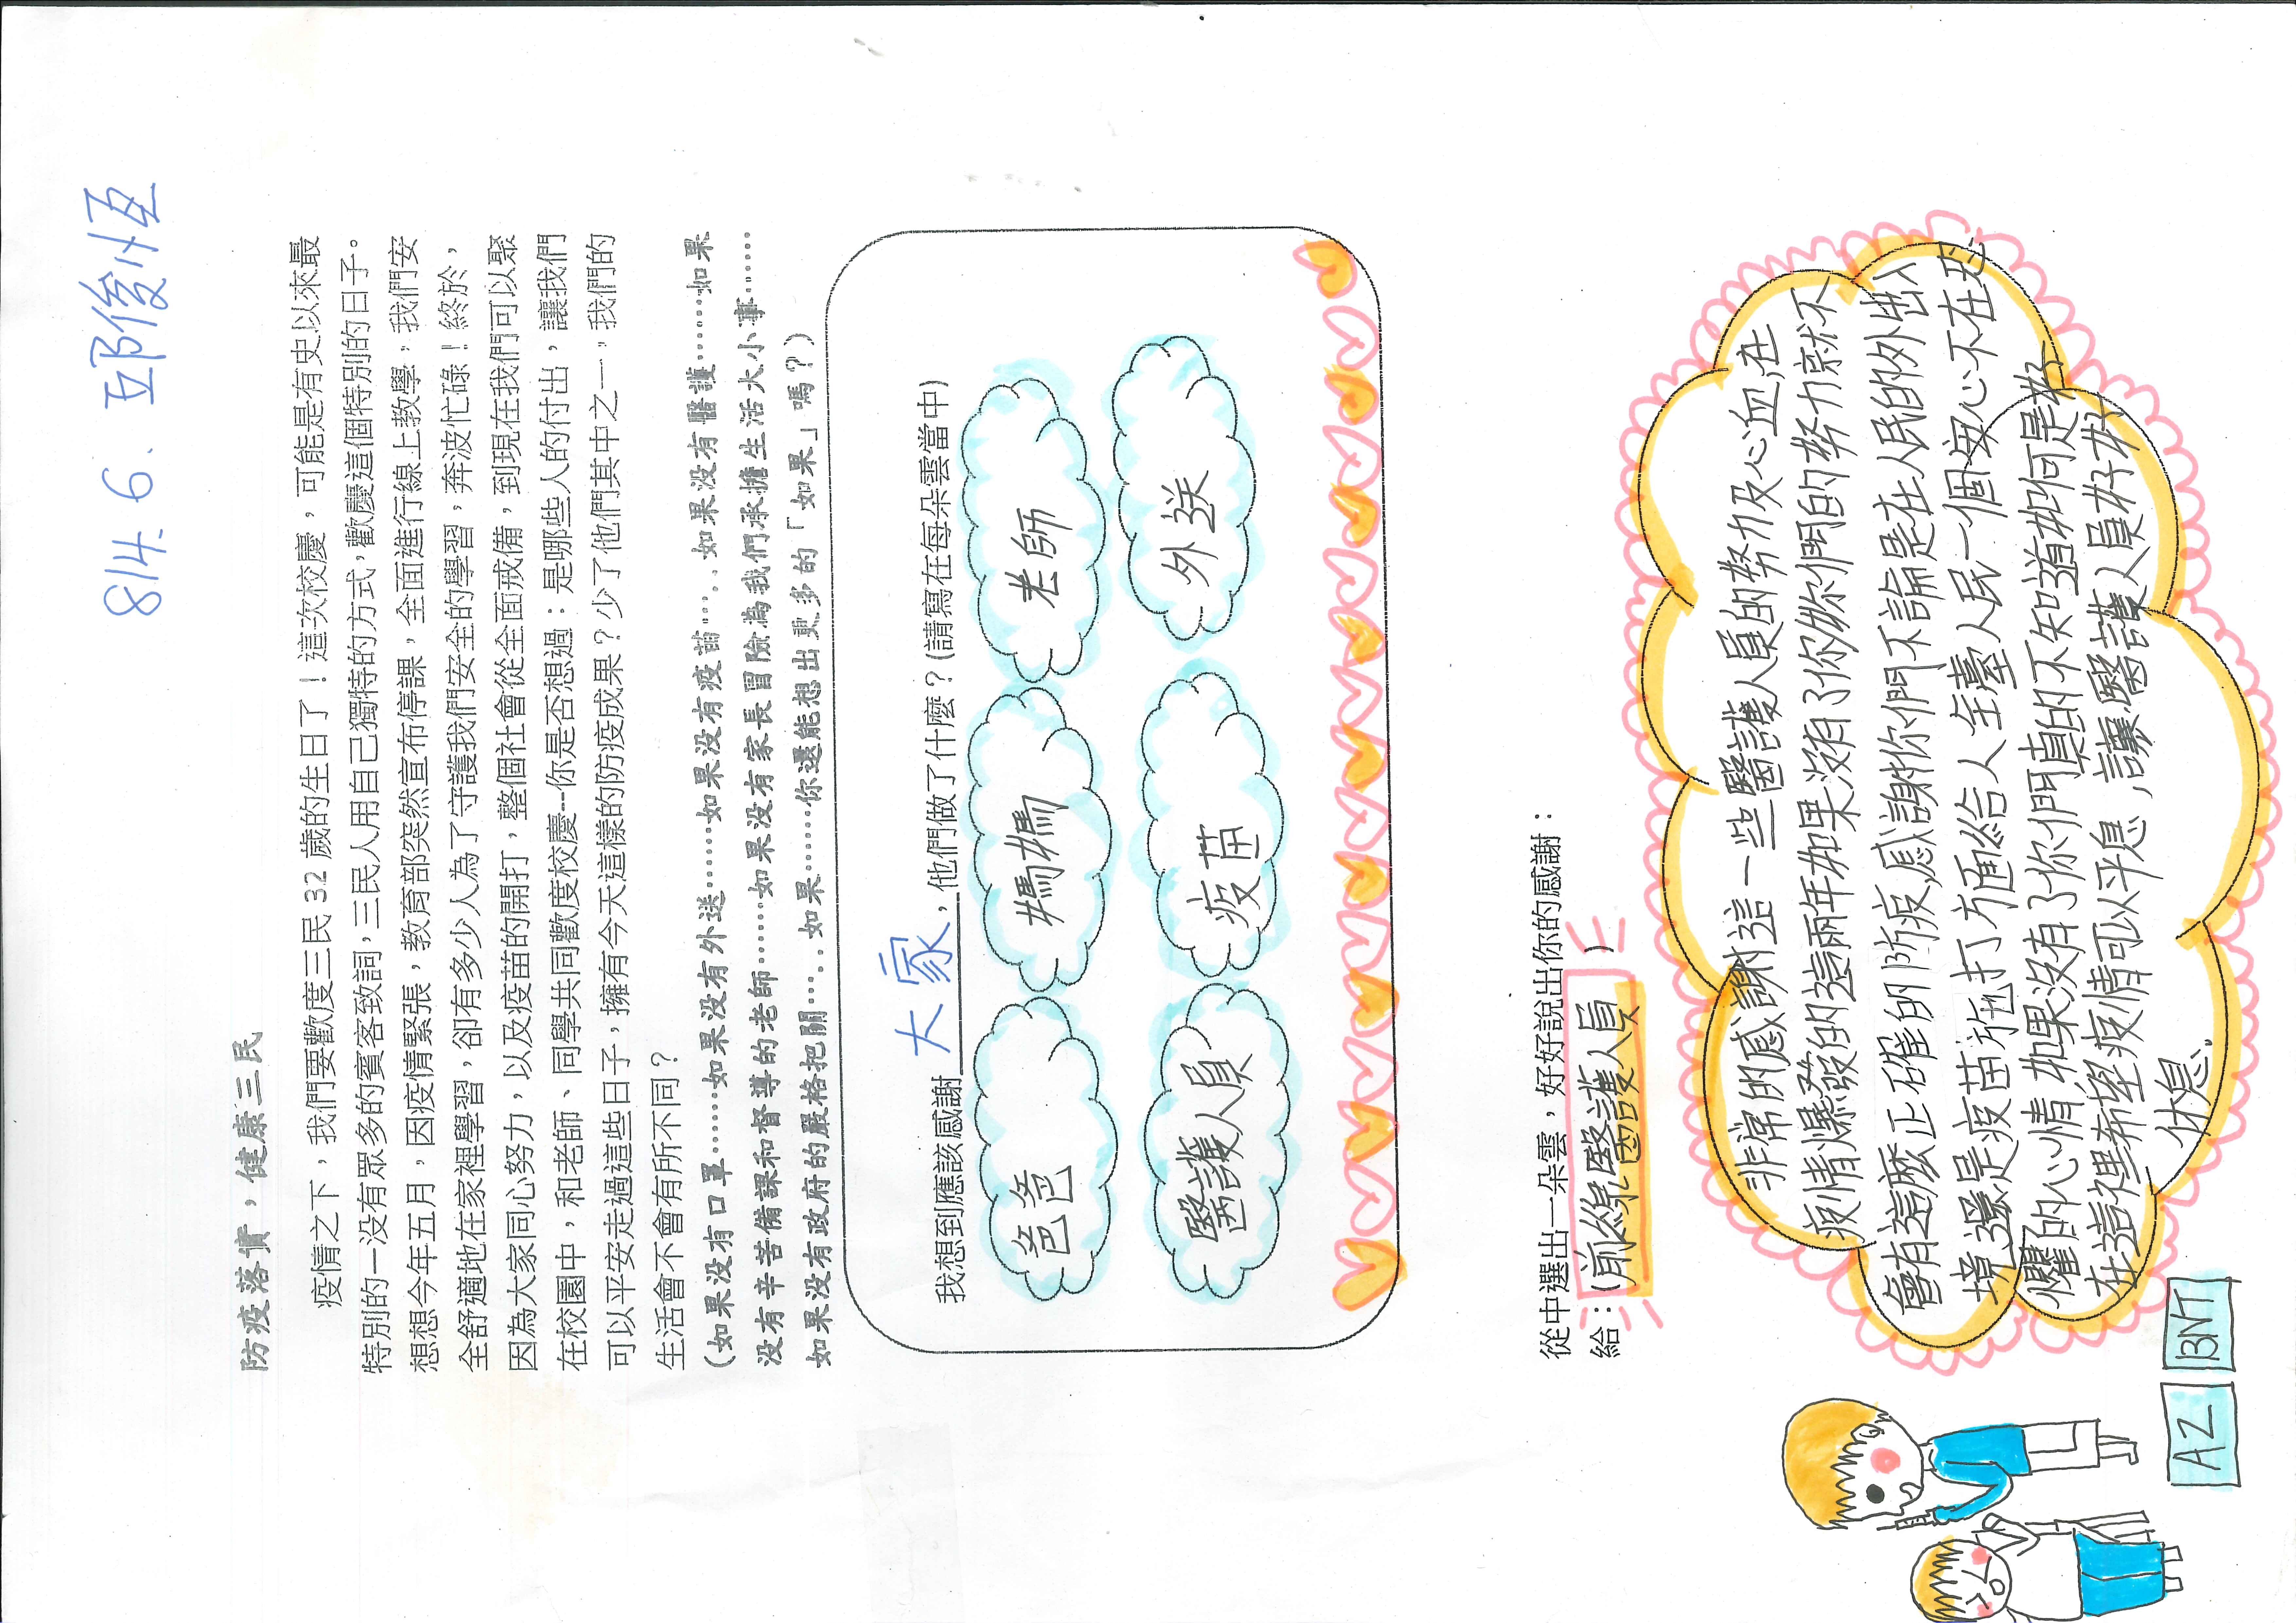 814. 6. 邱俊恆
防疫落實，健康三民
疫情之下，我們要歡度三民 32 歲的生日了！這次校慶，可能是有史以來最
特別的一沒有眾多的賓客致詞，三民人用自己獨特的方式，歡慶這個特別的日子。
想想今年五月，因疫情緊張，教育部突然宣布停課，全面進行線上教學，我們安
全舒適地在家裡學習，卻有多少人為了守護我們安全的學習，奔波忙碌！終於，
因為大家同心努力，以及疫苗的開打，整個社會從全面戒備，到現在我們可以聚
在校園中，和老師、同學共同歡度校慶--你是否想過：是哪些人的付出，讓我們
可以平安走過這些日子，擁有今天這樣的防疫成果？少了他們其中之一，我們的
生活會不會有所不同？
(如果沒有口罩……如果沒有外送……如果沒有疫苗……如果沒有醫護……如果
沒有辛苦備課和督導的老師……如果沒有家長冒險為我們承擔生活大小事……
如果沒有政府的嚴格把關……如果……你還能想出更多的「如果」嗎？)
我想到應該感謝大家，他們做了什麼？(請寫在每朵雲當中)
爸爸 媽媽 老師
醫護人員 疫苗 外送
從中選出一朵雲，好好說出你的感謝：
給：(前線醫護人員)
非常的感謝這一些醫護人員的努力及心血,在
疫情爆發的這兩年如果沒有了你們的努力就不
會有這麼正確的防疫,感謝你們不論是在人民的外出入
境還是疫苗施打方面給人全臺人民一個安心不在恐
懼的心情,如果沒有了你們真的不知道如何是好
在這裡希望疫情可以平息,讓醫護人員好好
休息。
AZ BNT